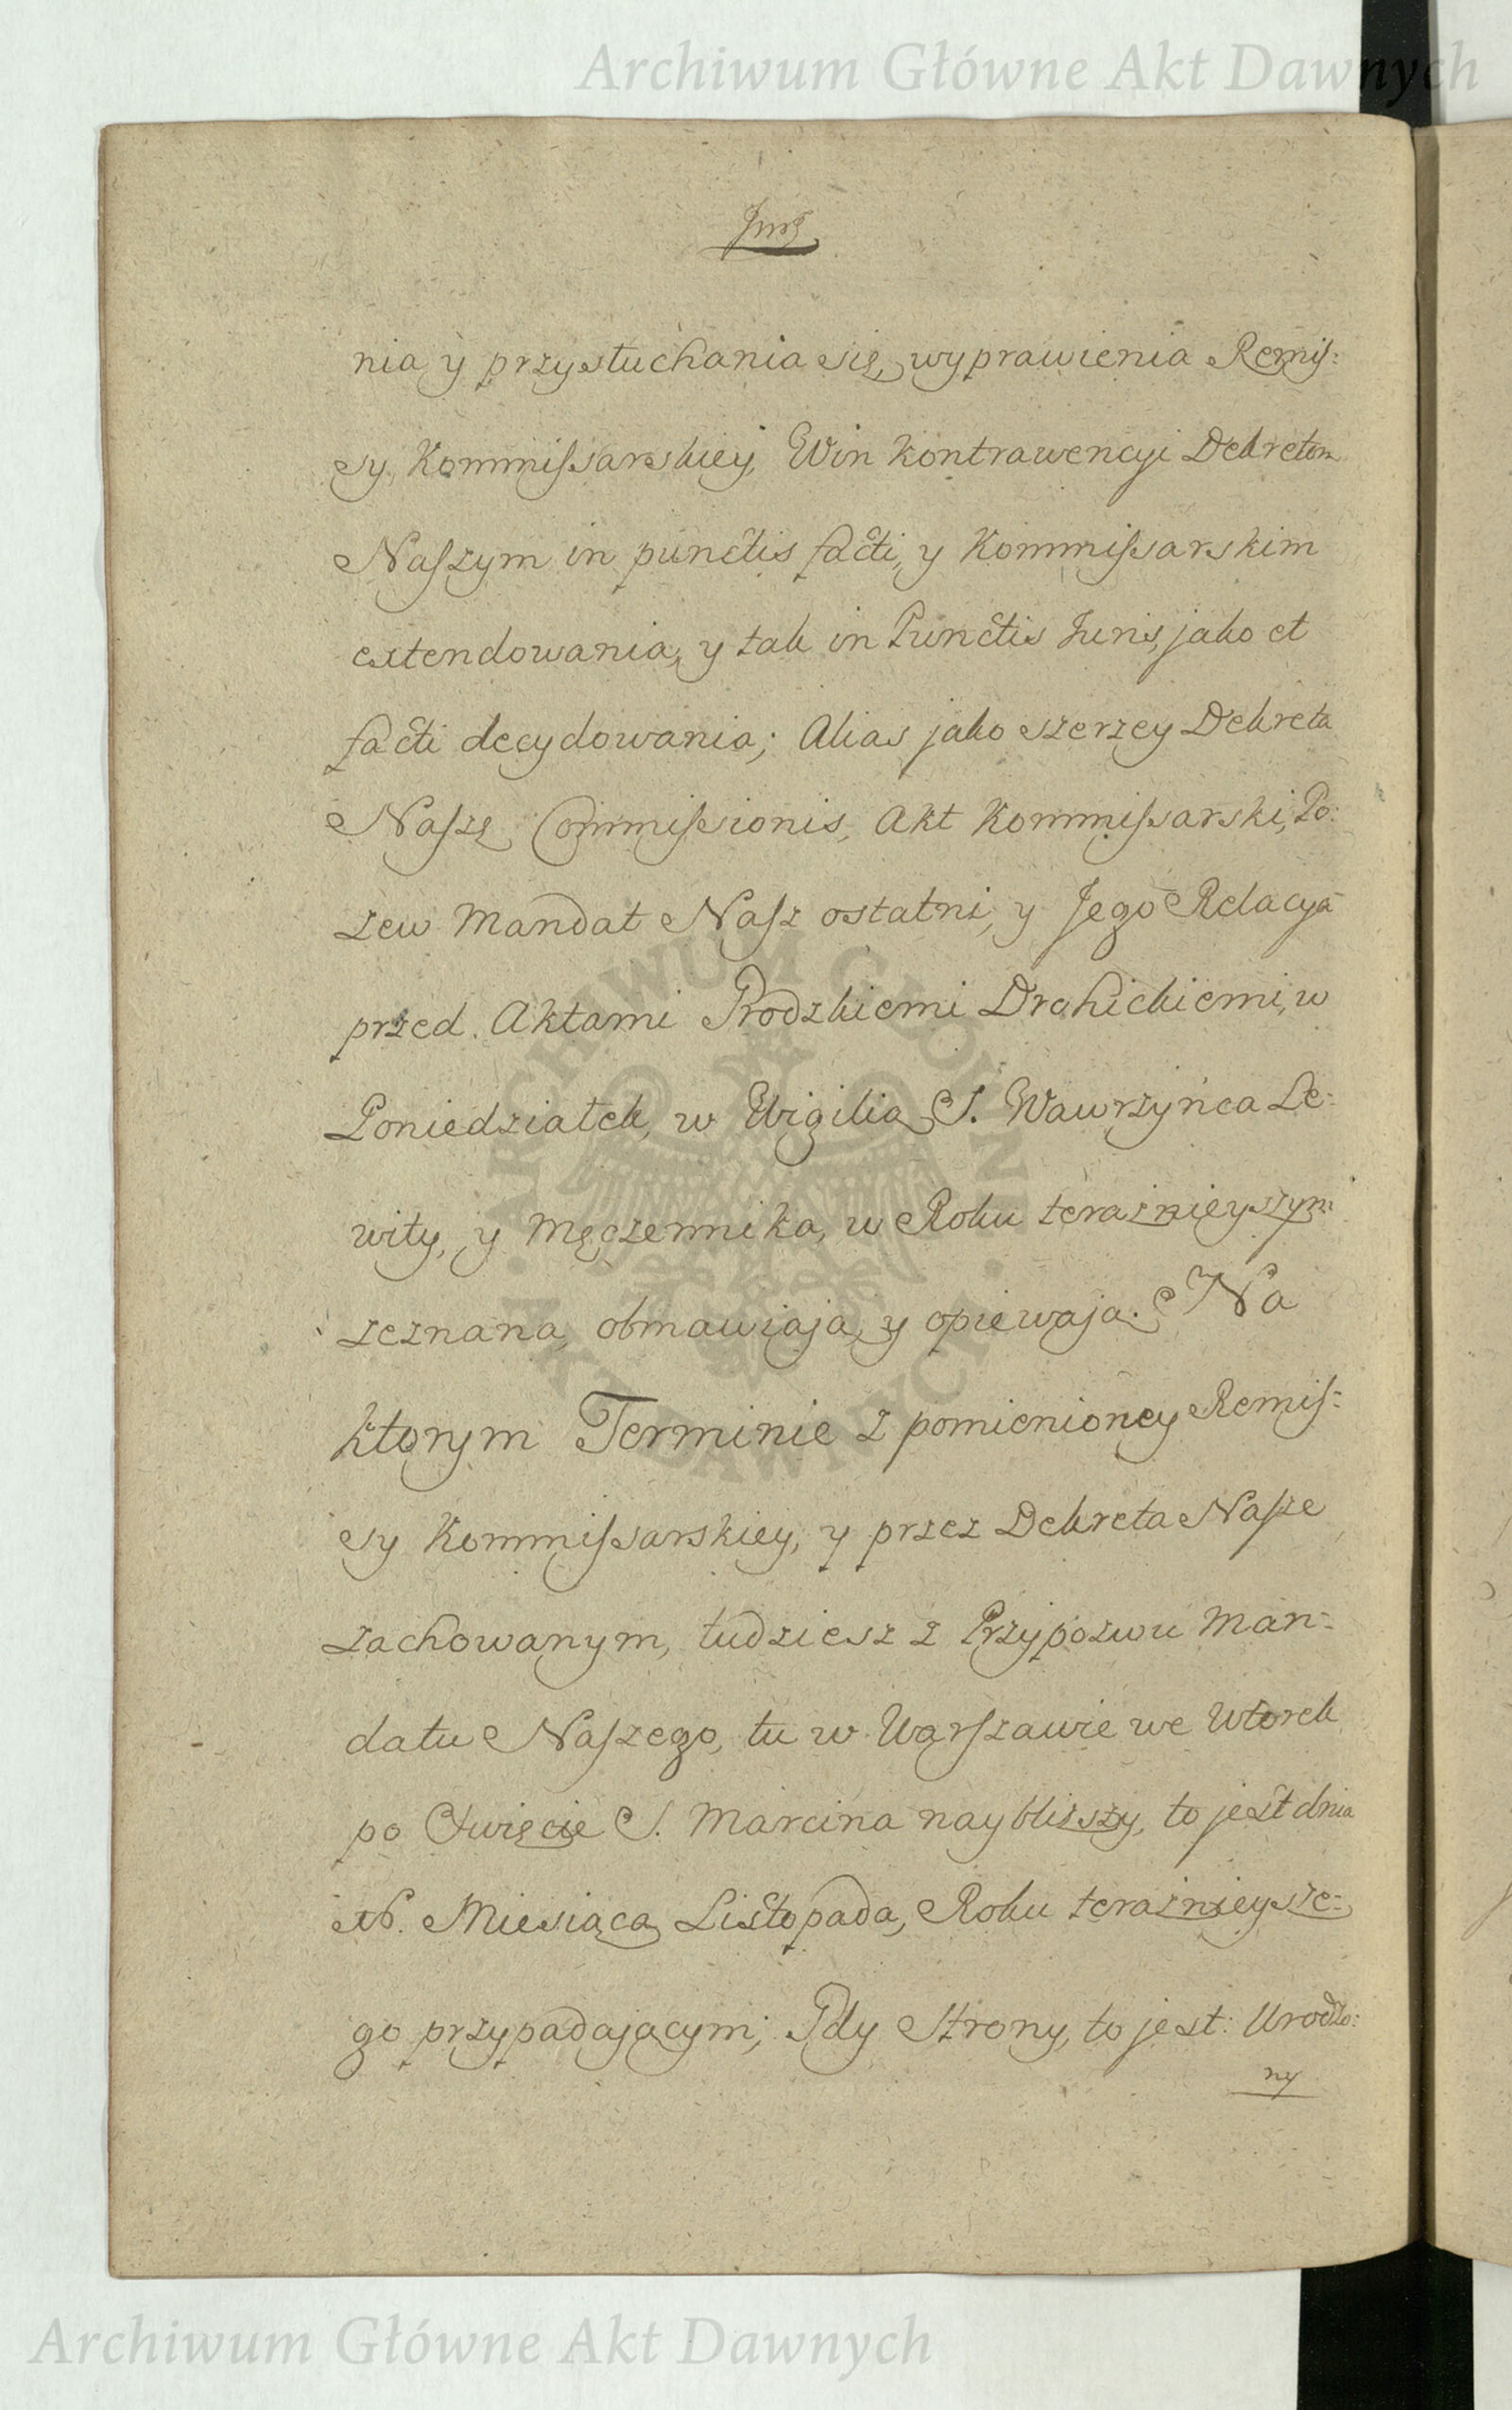 Archiwum Główne Akt Dawnych
nia, y przysłuchania się, wyprawienia Remis:
sy Kommissarskiey, Win Kontrawencyi Dekretom
Naszym in punctis facti, y Kommissarskim
extendowania, y tak in Punctis Juris, jako et
facti decydowania; Alias jako szerzey Dekreta
Naszę Commissionis, Akt Kommissarski, Po:
zew Mandat Nasz ostatni, y Jego Relacya
przed Aktami Grodzkiemi Drohickiemi, w
Poniedziałek, w Wigilią S. Wawrzyńca Le:
wity, y Męczennika, w Roku teraznieyszym
zeznana, obmawiaja, y opiewaja. Na
ktorym Terminie z pomienioney Remis:
sy Kommissarskiey, y przez Dekreta Nasze
zachowanym, tudziesz z Przypozwu Man:
datu Naszego, tu w Warszawie we Wtorek
po Swięcie S. Marcina nayblizszy, to jest dnia
Miesiąca Listopada, Roku teraznieysze:
go przypadającym; Gdy Strony, to jest: Urodzo:
ny
ARCHIWUM GŁÓWNE AKT DAWNYCH
Archiwum Główne Akt Dawnych